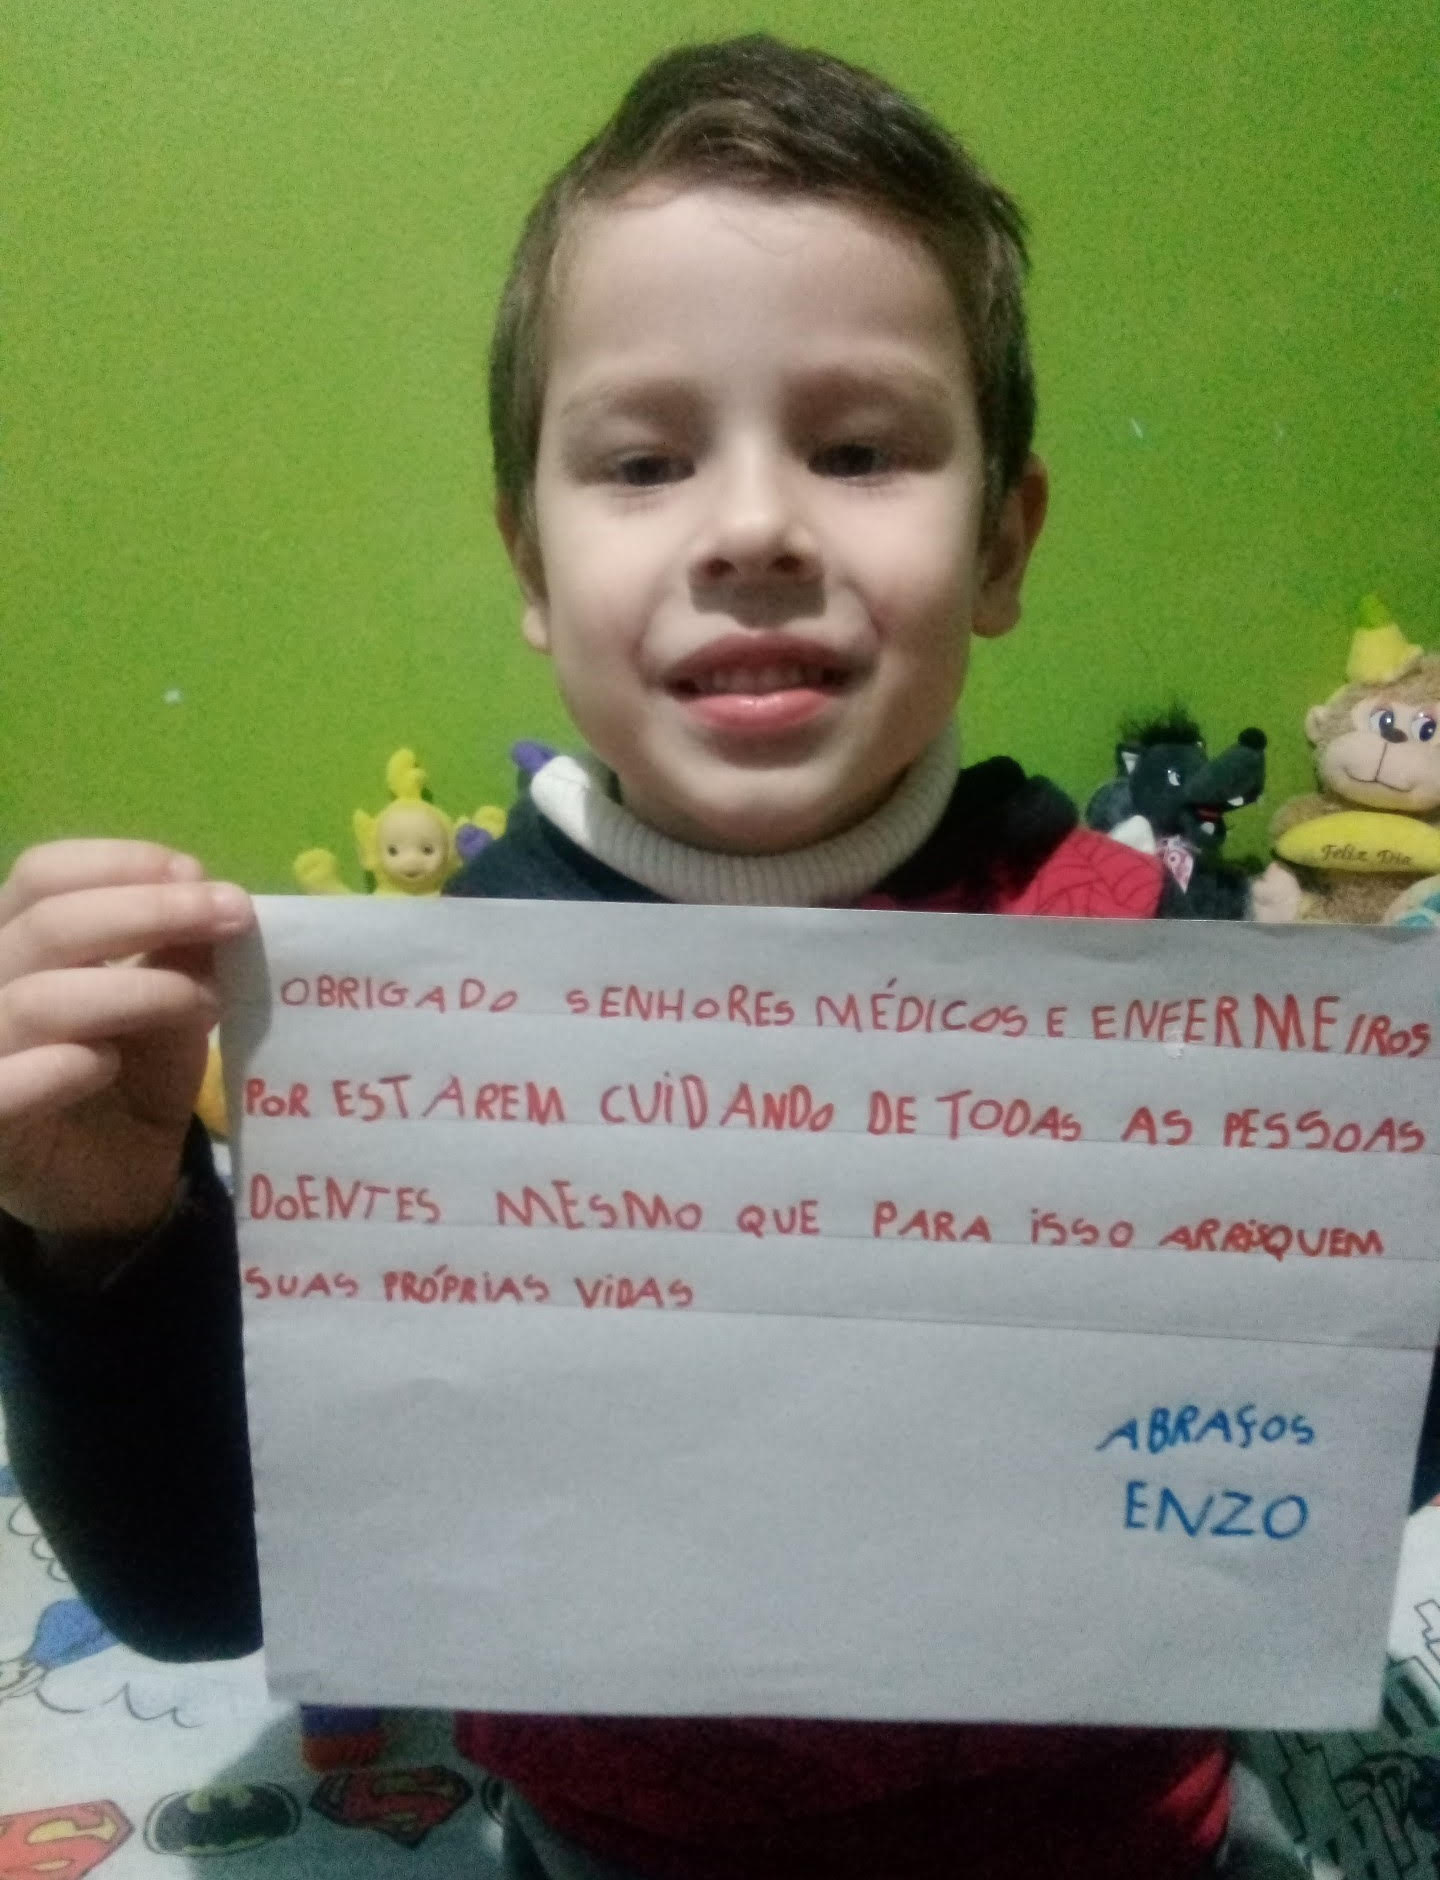 Feliz Dia
OBRIGADO SENHORES MÉDICOS E ENFERMEIROS
POR ESTAREM CUIDANDO DE TODAS AS PESSOAS
DOENTES MESMO QUE PARA ISSO ARRISQUEM
SUAS PRÓPRIAS VIDAS
ABRAÇOS
ENZO